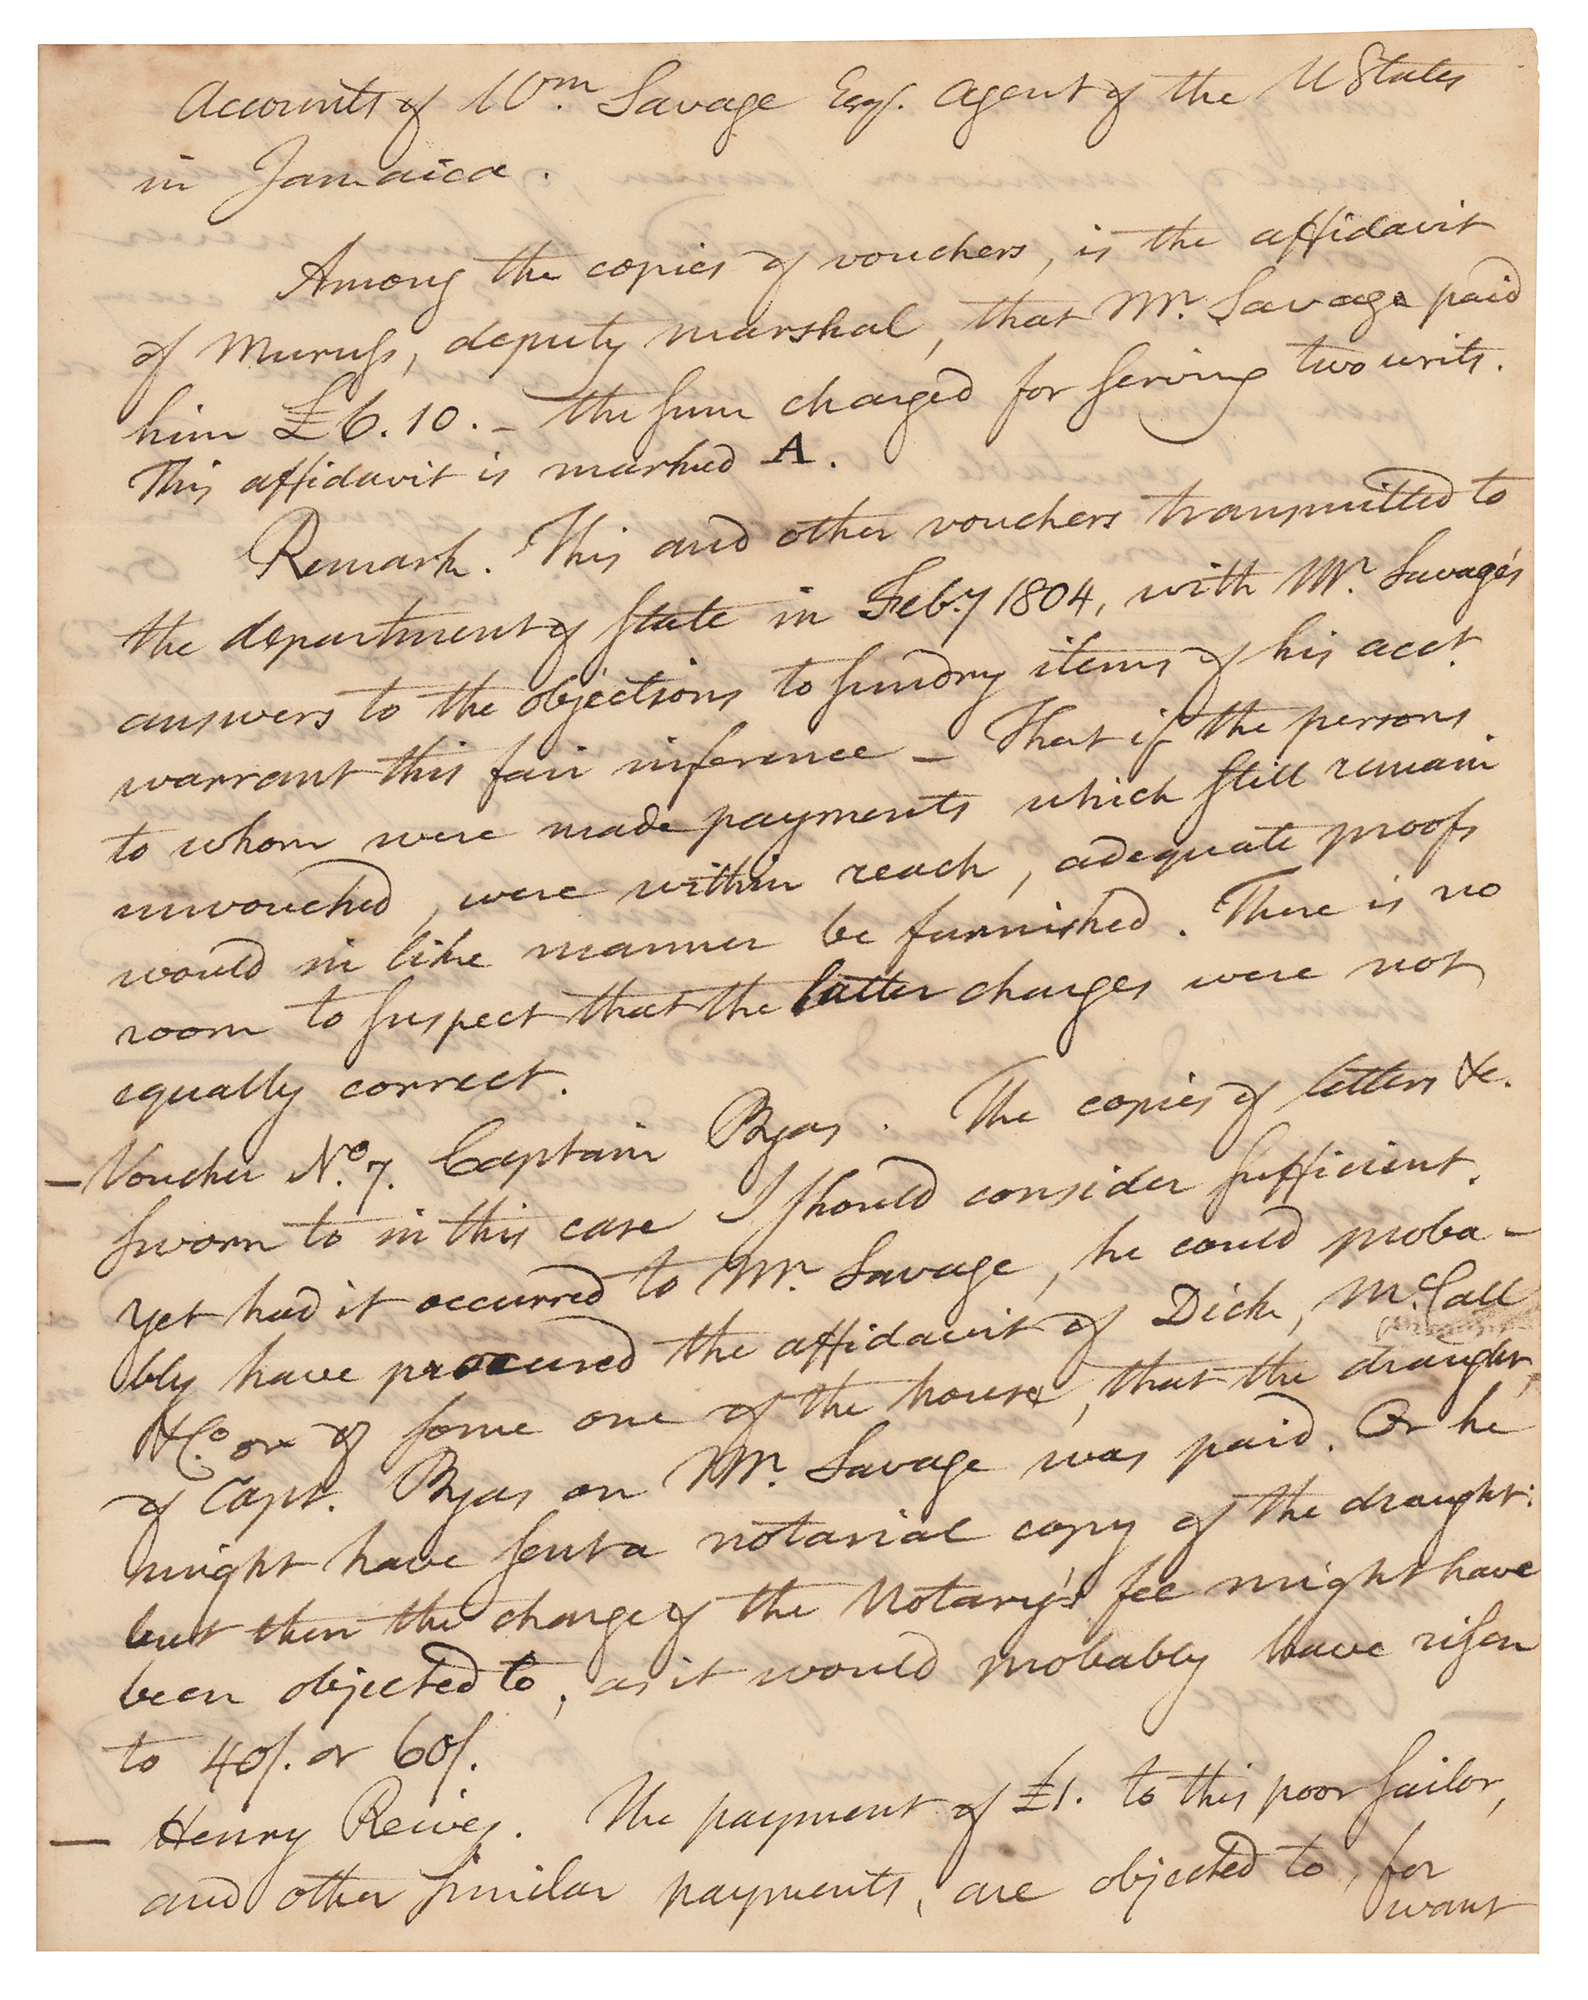 Accounts of Wm. Savage Esqr. Agent of the U States
in Jamaica.
Among the copies of vouchers, is the affidavit
of Muruss, deputy marshal, that Mr. Savage paid
him £6.10.– the sum charged for serving two writs.
This affidavit is marked A.
Remark. This and other vouchers transmitted to
the department of State in Feby. 1804, with Mr. Savage's
answers to the objections to sundry items of his acct.
warrant this fair inference – That if the persons
to whom were made payments which still remain
unvouched, were within reach, adequate proofs
would in like manner be furnished. There is no
room to suspect that the latter charges were not
equally correct.
– Voucher No. 7. Captain Byas. The copies of letters &c.
sworn to in this case I should consider sufficient.
Yet had it occurred to Mr. Savage, he could proba-
bly have procured the affidavit of Dick, McCall
& Co. or of some one of the house, that the draught,
of Capt. Byas on Mr. Savage was paid. Or he
might have sent a notarial copy of the draught:
but then the charge of the Notary's fee might have
been objected to, as it would probably have risen
to 40/. or 60/.
– Henry Reives. The payment of £1. to this poor sailor,
and other similar payments, are objected to, for
want